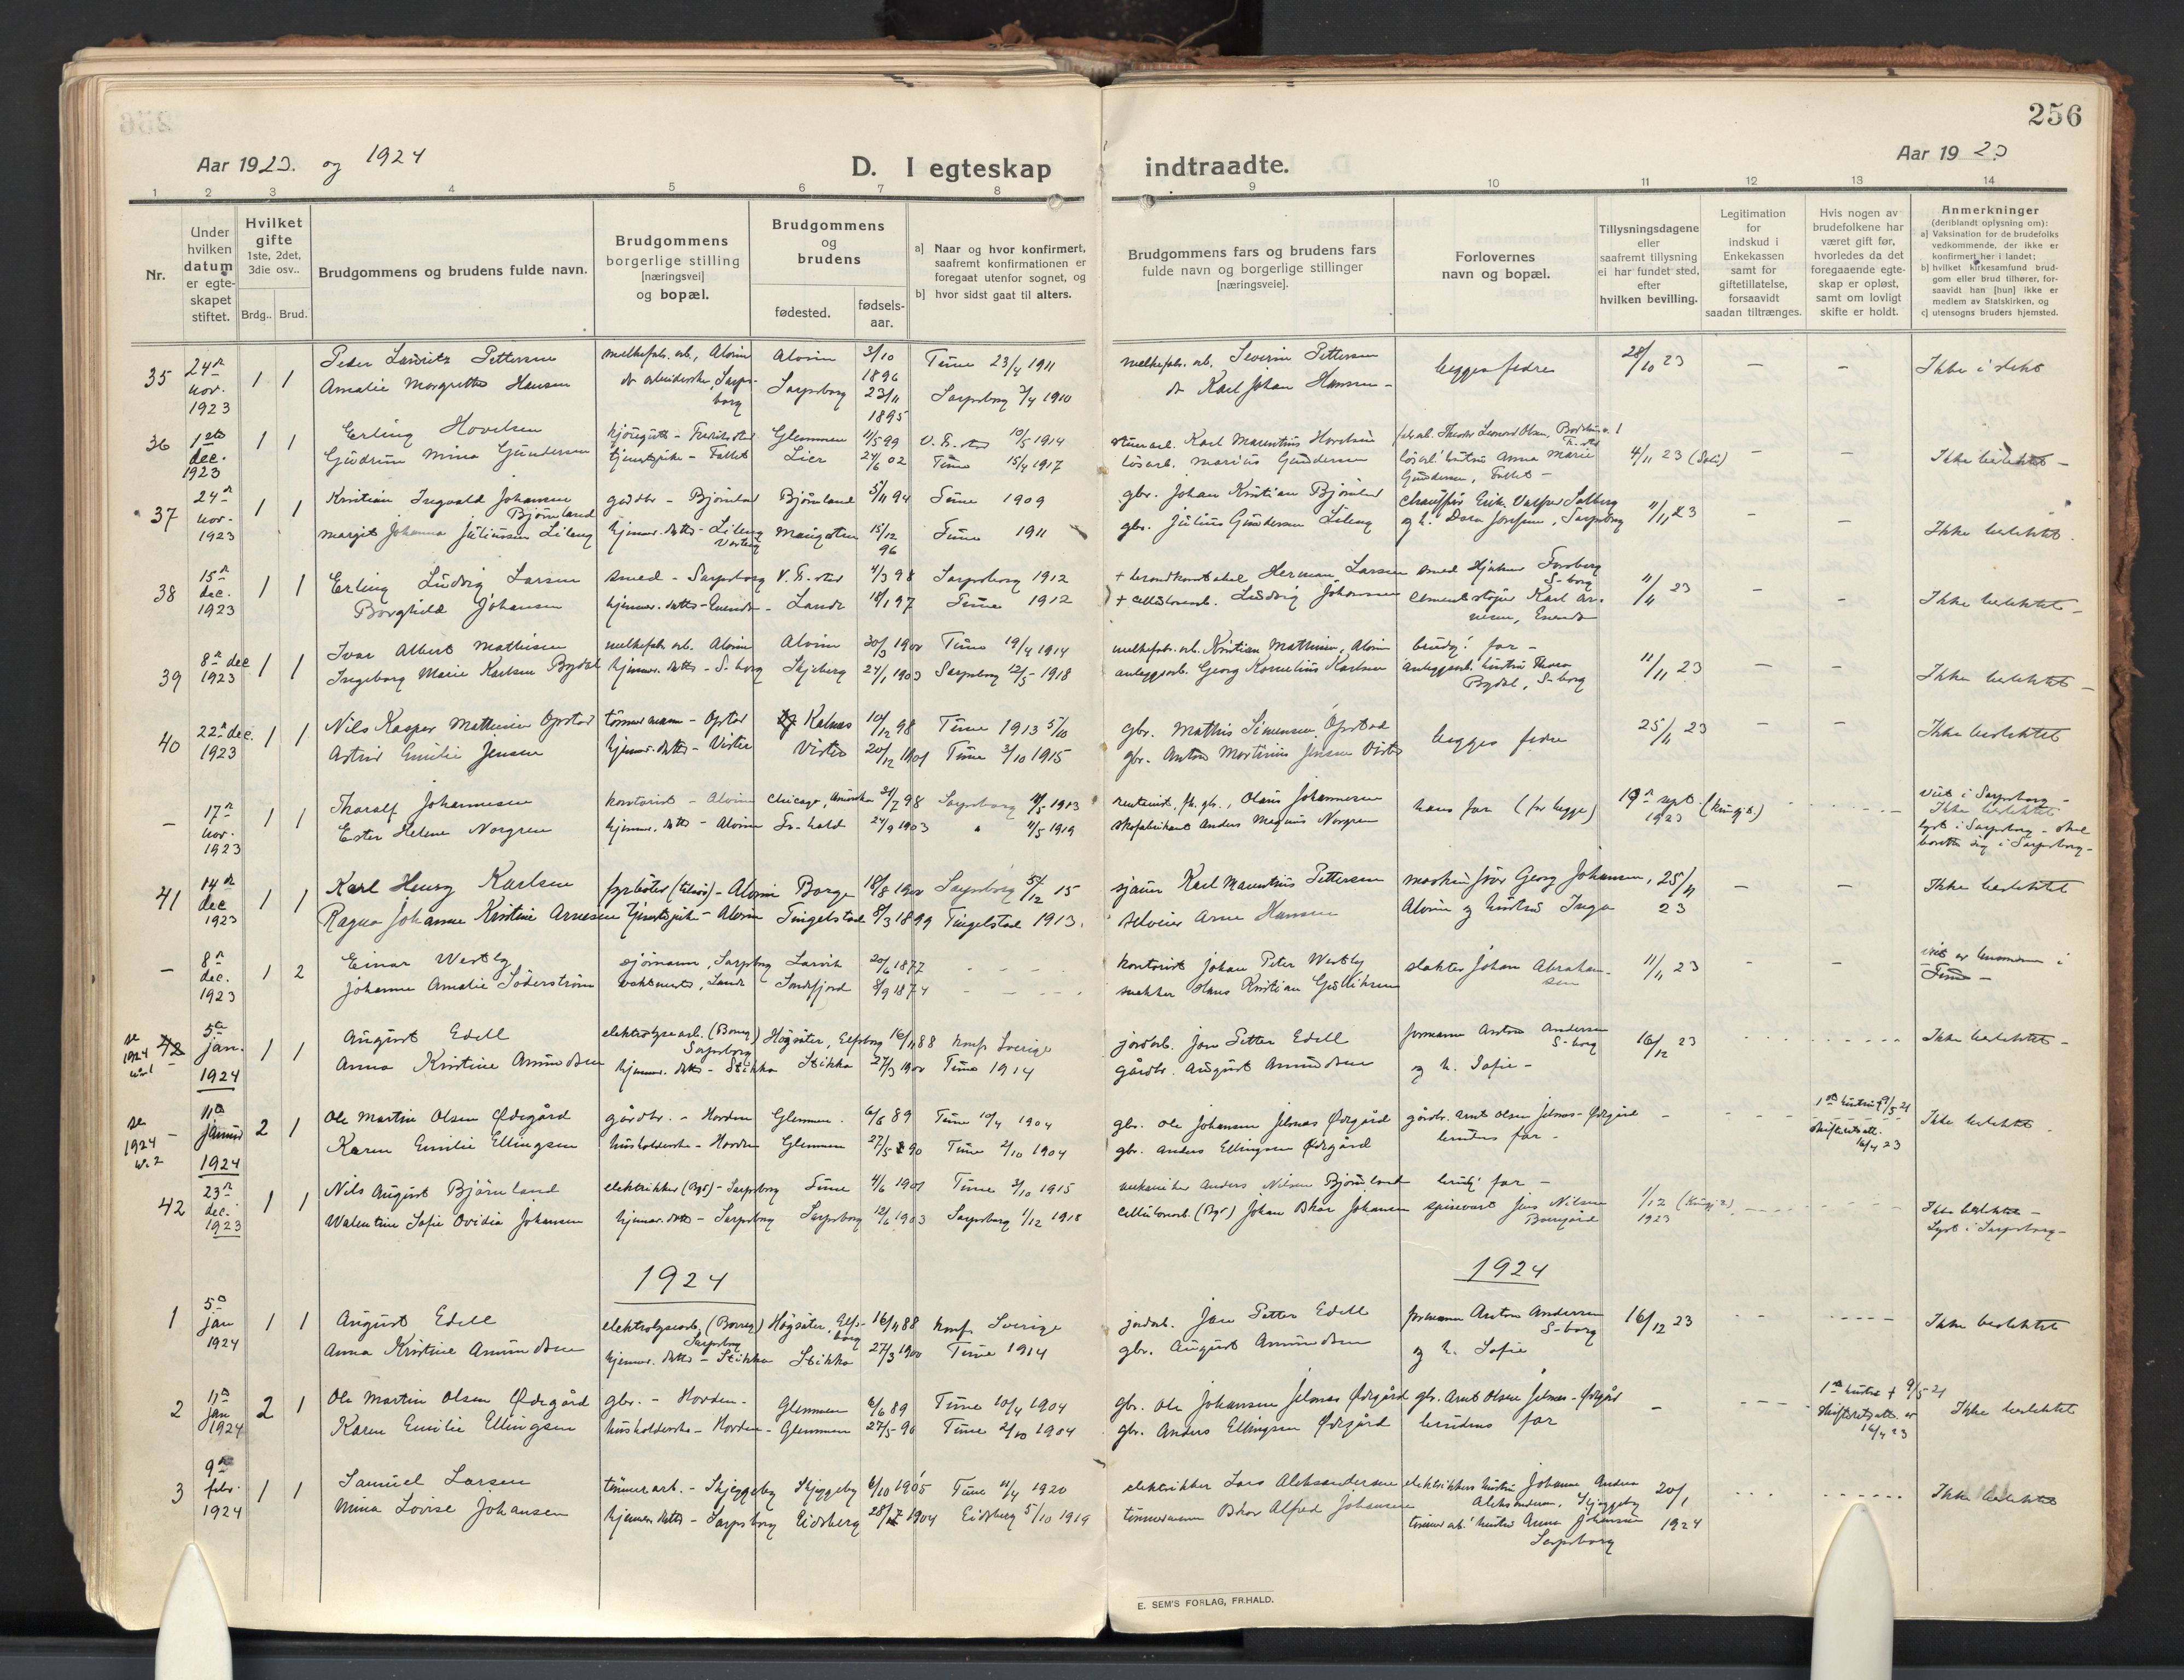 256
Aar 1923. og 1924
D. I egteskap indtraadte.
Aar 1923
1 2 3 4 5 6 7 8 9 10 11 12 13 14
Nr.
Under hvilken datum er egte-skapet stiftet.
Hvilket gifte 1ste, 2det, 3die osv..
Brdg.. Brud.
Brudgommens og brudens fulde navn.
Brudgommens borgerlige stilling [næringsvei] og bopæl.
Brudgommens og brudens
fødested.
fødsels-aar.
a) Naar og hvor konfirmert, saafremt konfirmationen er foregaat utenfor sognet, og
b) hvor sidst gaat til alters.
Brudgommens fars og brudens fars fulde navn og borgerlige stillinger [næringsveie].
Forlovernes navn og bopæl.
Tillysningsdagene eller saafremt tillysning ei har fundet sted, efter hvilken bevilling.
Legitimation for indskud i Enkekassen samt for giftetillatelse, forsaavidt saadan tiltrænges.
Hvis nogen av brudefolkene har været gift før, hvorledes da det foregaaende egte-skap er opløst, samt om lovligt skifte er holdt.
Anmerkninger (deriblandt oplysning om):
a) Vaksination for de brudefolks vedkommende, der ikke er konfirmert her i landet;
b) hvilket kirkesamfund brud-gom eller brud tilhører, for-saavidt han [hun] ikke er medlem av Statskirken, og
c) utensogns bruders hjemsted.
35 24de nov. 1923 1 1
Peder Lauritz Pettersen melkefabr. arb., Alvim Alvim 3/10 1896 Tune 23/4 1911 melkefabr. arb. Severin Pettersen begges fedre 28/10 23 — — Ikke i slekt
Amalie Margrethe Hansen Sarpsborg Sarpsborg 23/11 1895 Sarpsborg 3/4 1910 Karl Johan Hansen
36 1ste dec. 1923 1 1
Erling Hovelsen Glemmen 11/5 99 10/5 1914 Karl Marentius Hovelsen 4/11 23 — — Ikke beslektet
Gudrun Mina Gundersen tjenestpike - Lier 24/6 02 Tune 15/4 1917 løsarb. Marius Gundersen
37 24de nov. 1923 1 1
Kristian Ingvald Johansen Bjørnland gårdbr - Bjørnland Bjørnland 5/11 94 Tune 1909 gbr. Johan Kristian Bjørnland 11/11 23 — — Ikke beslektet.
Margit Johanne Juliussen Lileng hjemmev. datter - Lileng 15/12 96 Tune 1911 gbr. Julius Gundersen Lileng
38 15de dec. 1923 1 1
Erling Ludvig Larsen smed - Sarpsborg 4/3 98 Sarpsborg 1912 Herman Larsen smed Hjalmar Forsberg S-borg 11/11 23 — — Ikke beslektet
Borghild Johansen Lande 18/1 97 Tune 1912 + Ludvig Johansen
39 8de dec 1923 1 1
Ivar Albert Mathisen melkefabr. arb. Alvim Alvim 30/3 1900 Tune 19/4 1914 melkefabr. arb. Kristian Mathisen, Alvim brudg. far - 11/11 23 — — Ikke beslektet
Ingeborg Marie Karlsen Bydal hjemmev. datter - S-borg Skjeberg 24/1 1903 Sarpsborg 12/5 1918 anleggsarb. Georg Kornelius Karlsen Bydal, S-borg
40 22de dec. 1923 1 1
Nils Kasper Mathisen Opstad tømmermann - Opstad Kalnes 10/12 98 Tune 1913 5/10 gbr. Mathis Simensen Opstad begges fedre 25/11 23 — — Ikke beslektet
Astrid Emilie Jensen hjemmev. datter - Vister Vister 20/12 1901 Tune 3/10 1915 gbr. Anton Martinius Jensen Vister
— 17de nov. 1923 1 1
Thoralf Johannesen kontorist - Alvim Chicago, Amerika 31/7 98 Sarpsborg 1913 Olaus Johannesen hans far (for begge) 19de sept. 1923 Viet i Sarpsborg -
Ester Helene Norgren hjemmev. datter - Alvim Fr-hald 24/9 1903 " 4/5 1919 skofabrikant Anders Magnus Norgren Ikke beslektet
lyst i Sarpsborg - skal
bosette sig i Sarpsborg -
41 14de dec 1923 1 1
Karl Henry Karlsen fyrbøter (tilsøs) - Alvim Borge 18/8 1900 Sarpsborg 15 sjauer Karl Marentius Pettersen Georg Johansen, 25/11 23 — — Ikke beslektet
Ragna Johanne Kristine Arnesen tjenestpike - Alvim Tingelstad 8/3 1899 Tingelstad 1913. Arne Hansen Alvim og hustru Inga
— 8de dec. 1923 1 2
Einar Westby sjømann, Sarpsborg Larvik 20/6 1877 — — — kontorist Johan Peter Westby slakter Johan Abrahamsen 11/11 23 — —
Johanne Amalie Söderström Sandefjord 8/9 1874 — — — snekker Hans Kristian Gulliksen
se 1924 nr. 1 42 5te jan. 1924 1 1
August Edell elektrolysearb. (Borreg) Sarpsborg Högsäter, Elfsborg 16/11 88 konf. Sverige jordarb. Jan Petter Edell formann Anton Andersen S-borg 16/12 23 Ikke beslektet -
Anna Kristine Amundsen hjemmev. datter - Stikka Stikka 27/3 1900 Tune 1914 gårdbr. August Amundsen og h. Sofie -
se 1924 nr. 2 — 11te januar 1924 2 1
Ole Martin Olsen Ødegård gårdbr. - Horden Glemmen. 6/6 89 Tune 10/4 1904 gbr. Ole Johansen Jelsnes Ødegård gårdbr. Arnt Olsen Jelsnes - Ødegård - 1ste hustru † 9/5 21 skifteretsatt. 16/4 23 Ikke beslektet
Karen Emilie Ellingsen husholderske - Horden Glemmen 27/5 90 Tune 2/10 1904 gbr. Anders Ellingsen Ødegård brudens far -
42 23de dec. 1923 1 1
Nils August Bjørnland elektrikker - Sarpsborg Tune 4/6 1901 Tune 3/10 1915 mekaniker Anders Nilsen Bjørnland brudg. far - 1/12 1923 Ikke beslektet -
Walentine Sofie Ovidia Johansen hjemmev. datter - Sarpsborg Sarpsborg 12/6 1903 Sarpsborg 1/12 1918 Johan Oskar Johansen spisevert Jens Nilsen Lyst i Sarpsborg -
1924 1924
1 5te jan 1924 1 1
August Edell elektrolysearb. (Borreg) Sarpsborg Högsäter, Elfsborg 16/11 88 konf. Sverige jordarb. Jan Petter Edell formann Anton Andersen S-borg 16/12 23 Ikke beslektet
Anna Kristine Amundsen hjemmev. datter - Stikka Stikka 27/3 1900 Tune 1914 gbr. August Amundsen og h. Sofie
2 11te jan 1924 2 1
Ole Martin Olsen Ødegård gbr. - Horden - Glemmen 6/6 89 Tune 10/4 1904 gbr. Ole Johansen Jelsnes Ødegård gbr. Arnt Olsen Jelsnes - Ødegård - 1ste hustru † 9/5 21 skifteretsatt. av 16/4 23 Ikke beslektet
Karen Emilie Ellingsen husholderske - Horden - Glemmen 27/5 90 Tune 2/10 1904 gbr. Anders Ellingsen Ødegård brudens far
3 9de febr. 1924 1 1
Samuel Larsen tømmerarb. - Skjeggeby Skjeggeby 6/10 1905 Tune 11/4 1920 elektrikker Lars Aleksandersen elektrikkers hustru Johanne Andrea Aleksandersen, Skjeggeby 20/1 1924 Ikke beslektet
Mina Lovise Johansen hjemmev. datter - Sarpsborg Eidsberg 1904 Eidsberg 5/10 1919 tømmermann Oskar Alfred Johansen tømmerarb. hustru Anna Johansen Sarpsborg
E. SEM'S FORLAG, FR.HALD.